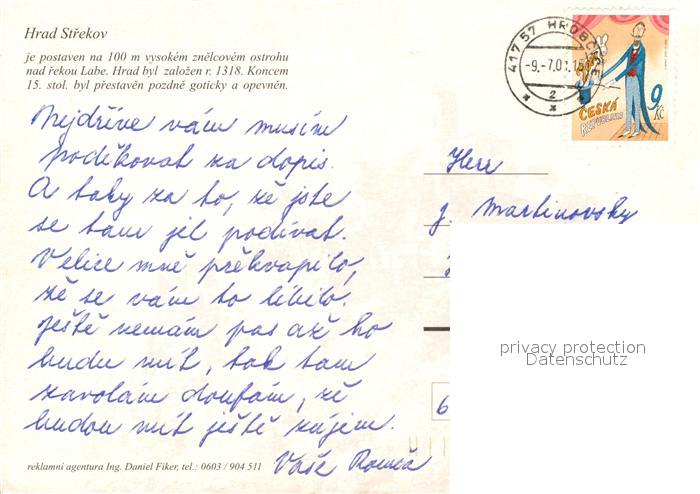 Hrad Střekov
je postaven na 100 m vysokém znělcovém ostrohu
nad řekou Labe. Hrad byl založen r. 1318. Koncem
15. stol. byl přestavěn pozdně goticky a opevněn.
Nejdříve vám musím
poděkovat za dopis.
A taky za to, že jste
se tam jel podívat.
Velice mně překvapilo,
žě se vám to líbilo.
Ještě nemám pas až ho
budu mít, tak tam
zavolám doufám, žě
budou mít ještě zájem.
Vaše
reklamní agentura Ing. Daniel Fiker, tel.: 0603 / 904 511
417 57 HROBČICE
-9.-7.01.15
2
ČESKÁ
REPUBLIKA
9
Kč
Herr
J. Martinovsky
6
privacy protection
Datenschutz